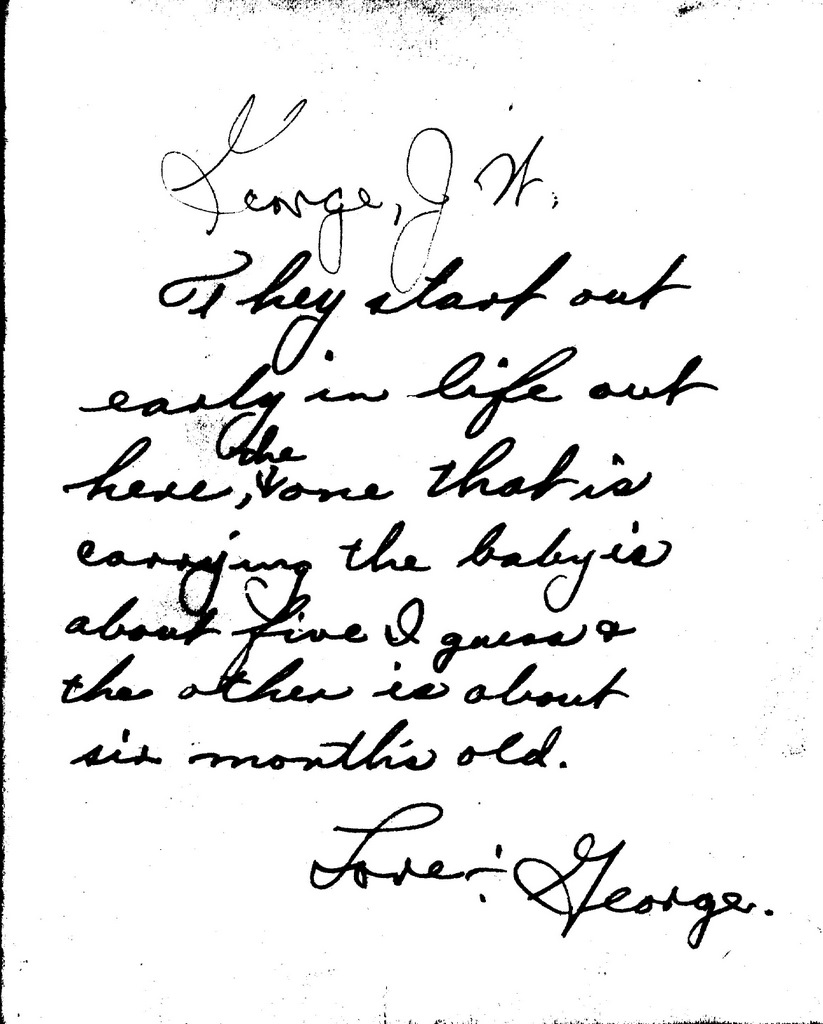 George, J W.
They start out
early in life out
here, the one that is
carrying the baby is
about five I guess &
the other is about
six month's old.
Love -:- George.